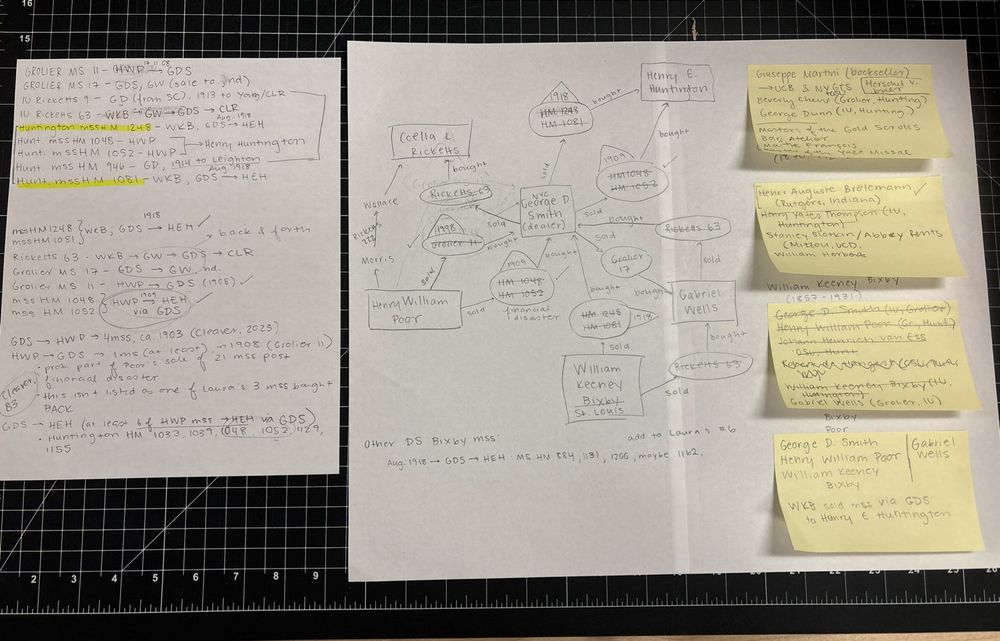 GROLIER MS 11 - HWP 17.11.08 → GDS
GROLIER MS 17 - GDS, GW (sale to, nd)
IU Ricketts 9 - GD (from SC), 1913 to Yoam/CLR
IU Ricketts 63 - WKB → GW → GDS → CLR
Aug. 1918
Huntington mssHM 1248 - WKB, GDS → HEH
Hunt. mssHM 1048 - HWP
→ Henry Huntington
Hunt. mssHM 1052 - HWP
Hunt. mssHM 946 - GD, 1914 to Leighton
Aug 1918
Hunt. mssHM 1081 - WKB, GDS → HEH
1918
mssHM 1248 } WKB, GDS → HEH ✓
mssHM 1081
back & forth
Ricketts 63 - WKB → GW → GDS → CLR
Grolier MS 17 - GDS → GW, nd.
Grolier MS 11 - HWP → GDS (1908) ✓
mss HM 1048
mss HM 1052
HWP 1909 → HEH
via GDS
✓
GDS → HWP → 4mss, ca. 1903 (Cleaver, 2023)
HWP → GDS → 1ms (at least) in 1908 (Grolier 11)
• prob. part of Poor's sale of 21 mss post
financial disaster
• this isn't listed as one of Laura's 3 mss bought
BACK
Cleaver, 83
GDS → HEH (at least 6 of HWP mss → HEH via GDS)
• Huntington HM 1033, 1039, 1048, 1052, 1129,
1155
Henry E.
Huntington
bought
1918
HM 1248
HM 1081
Coella &
Ricketts
bought
Ricketts 63
sold
bought
1909
HM 1048
HM 1052
sold
NYC
George D.
Smith
(dealer)
sold
bought
Ricketts 63
Wallace
Ricketts
222
Morris
1998
Grolier 11
bought
sold
sold
Grolier
17
sold
bought
1909
HM 1048
HM 1052
bought
bought
Gabriel
Wells
Henry William
Poor
sold
financial
disaster
HM 1248
HM 1081
1918
bought
sold
William
Keeney
Bixby
St. Louis
Ricketts 63
sold
add to Laura's #6
Other DS Bixby mss:
Aug. 1918 → GDS → HEH: MS HM 884, 1131, 1200, maybe 1162.
Giuseppe Martini (bookseller)
→ UCB & NY, GTS
Herschel V.
Beverly Chew (Grolier, Hunting)
George Dunn (IU, Hunting)
Master of the Gold Scrolls
Bari Atelier
Maitre François
Master of the Yale Missal
Henri Auguste Brölemann ✓
(Rutgers, Indiana)
Henry Yates Thompson (IU,
Huntington)
Stanley Slotkin / Abbey Rents
(Mizzou, UCD.
William Herbert
William Keeney Bixby
(1857-1931)
George D. Smith (IU, Grolier)
Henry William Poor (Gr, Hunt)
Johann Heinrich van Ess
OSU, Hunt
William Keeney Bixby (IU,
Huntington)
Gabriel Wells (Grolier, IU)
Bixby
Poor
George D. Smith
Henry William Poor
William Keeney
Bixby
Gabriel
Wells
WKB sold mss via GDS
to Henry E Huntington
16
15
2 3 4 5 6 7 8 9
20 21 22 23 24 25 26